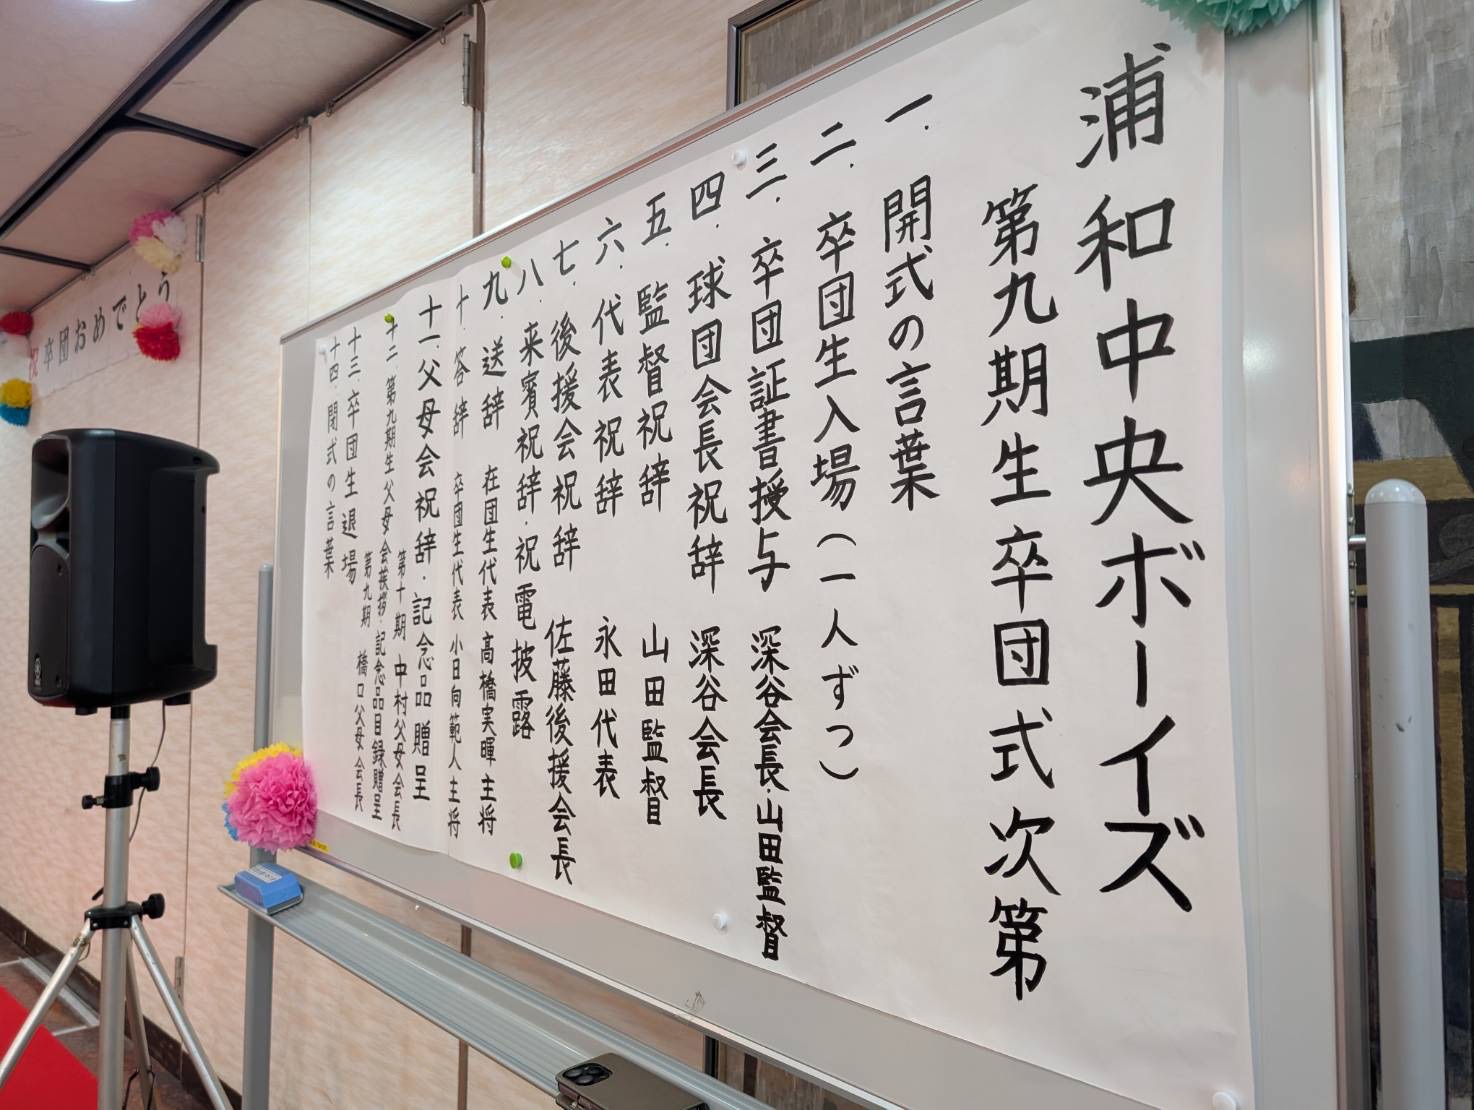 浦和中央ボーイズ
第九期生卒団式次第
一.開式の言葉
二.卒団生入場(一人ずつ)
三.卒団証書授与 深谷会長・山田監督
四.球団会長祝辞 深谷会長
五.監督祝辞 山田監督
六.代表祝辞 永田代表
七.後援会祝辞 佐藤後援会長
八.来賓祝辞・祝電披露
九.送辞 在団生代表 高橋実暉主将
十.答辞 卒団生代表 小日向範人主将
十一.父母会祝辞・記念品贈呈
第十期 中村父母会長
十二.第九期生父母会挨拶・記念品目録贈呈
第九期 橋口父母会長
十三.卒団生退場
十四.閉式の言葉
祝卒団おめでとう